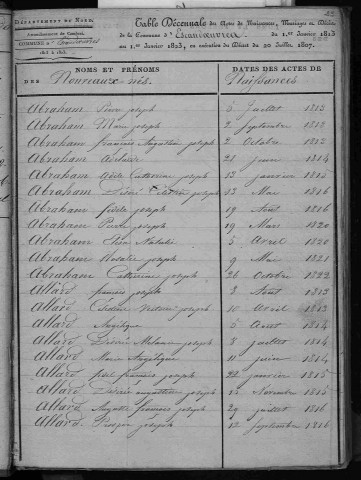 DÉPARTEMENT DU NORD.
Arrondissement de Cambrai.
COMMUNE d'Escaudœuvres
1813 à 1823.
Table Décennale des Actes de Naissances, Mariages et Décès
de la Commune d'Escaudœuvres du 1.er Janvier 1813
au 1.er Janvier 1823, en exécution du Décret du 20 Juillet 1807.
NOMS ET PRÉNOMS DATES DES ACTES DE
DES Nouveaux-nés. Naissances
Abraham Pierre joseph 5 Juillet 1813
Abraham Marie joseph 2 Septembre 1812
Abraham francois Augustin joseph 2 Octobre
Abraham Adelaïde 21 juin 1814
Abraham Adèle Catherine joseph 13 janvier 1815
Abraham Désiré joseph 13 Mai 1816
Abraham fidèle joseph 19 Aout 1816
Abraham Pierre joseph 19 Mars 1820
Abraham Natalie 5 Avril 1820
Abraham Rosalie joseph 9 Mai 1821
Abraham Catherine joseph 26 Octobre 1822
Allard francois joseph 8 Aout 1813
Allard joseph 10 Avril 1813
Allard Angélique 5 Aout 1814
Allard Désiré joseph 8 juillet 1814
Allard Marie Angélique 11 juin 1814
Allard fidel francois joseph 22 janvier 1815
Allard Désiré augustin joseph 12 Novembre 1815
Allard Auguste francois joseph 29 juillet 1816
Allard Prosper joseph 12 Septembre 1816